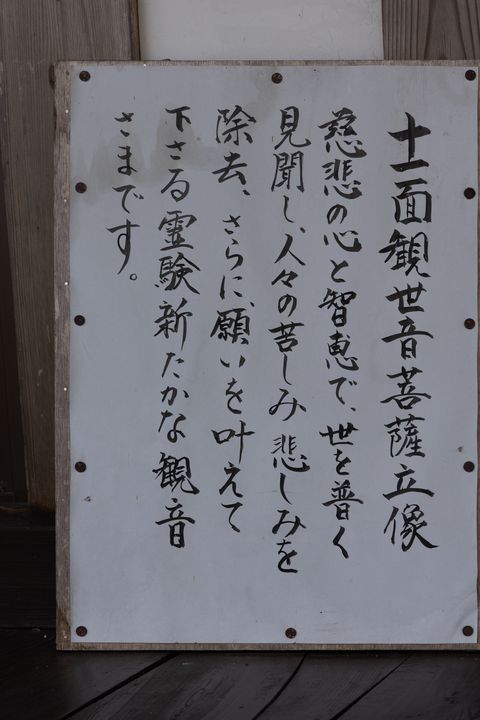 十一面観世音菩薩立像
慈悲の心と智恵で、世を普く
見聞し、人々の苦しみ悲しみを
除去、さらに、願いを叶えて
下さる霊験新たかな観音
さまです。